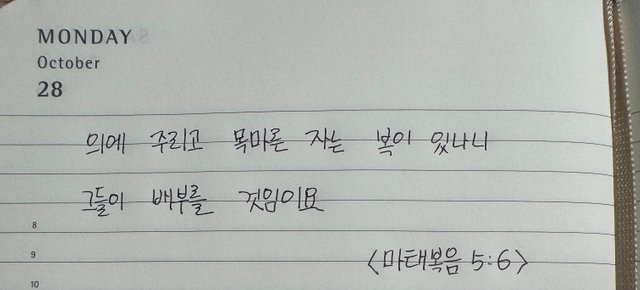 MONDAY
October
28
의에 주리고 목마른 자는 복이 있나니
그들이 배부를 것임이요
8
<마태복음 5:6>
9
10